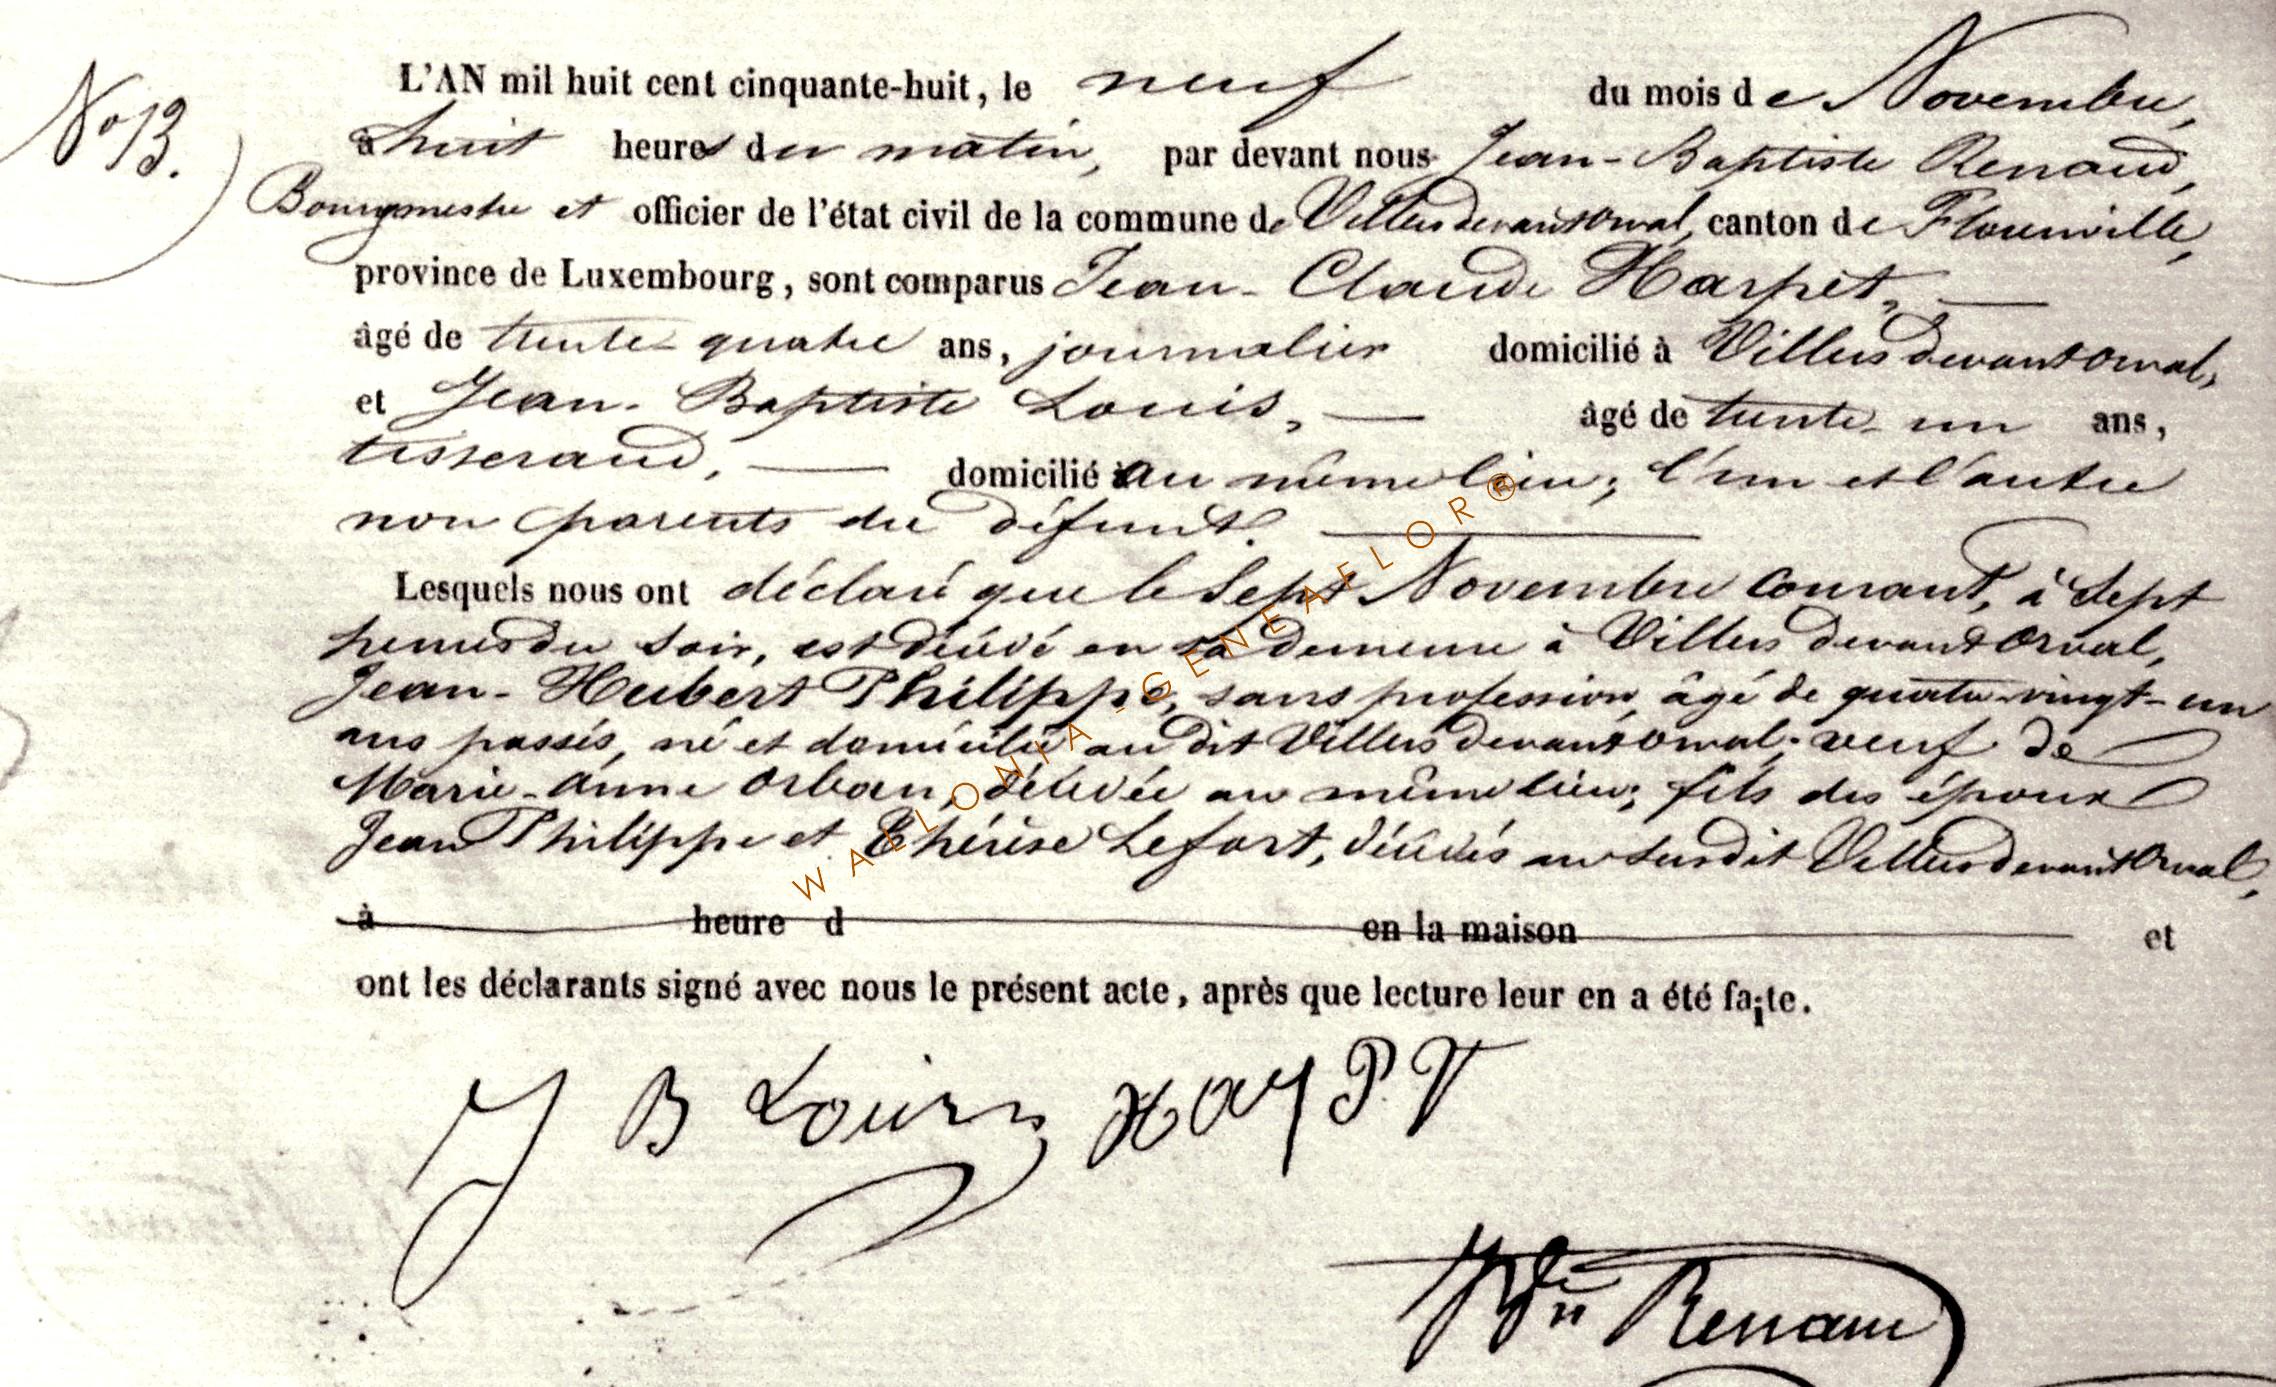 N° 13.
L'AN mil huit cent cinquante-huit, le neuf du mois de Novembre,
à huit heures du matin, par devant nous Jean-Baptiste Renaud,
Bourgmestre et officier de l'état civil de la commune de Villers devant Orval, canton de Florenville,
province de Luxembourg, sont comparus Jean-Claude Harpet,
âgé de trente-quatre ans, journalier domicilié à Villers devant Orval,
et Jean-Baptiste Louis, âgé de trente-un ans,
tisserand, domicilié au même lieu; l'un et l'autre
non parents du défunt.
Lesquels nous ont déclaré que le sept Novembre courant, à sept
heures du soir, est décédé en sa demeure à Villers devant Orval,
Jean-Hubert Philippe, sans profession, âgé de quatre-vingt-un
ans passés, né et domicilié au dit Villers devant Orval; veuf de
Marie-Anne Orban, décédée au même lieu; fils des époux
Jean Philippe et Thérèse Lefort, décédés au susdit Villers devant Orval,
à heure d en la maison et
ont les déclarants signé avec nous le présent acte, après que lecture leur en a été faite.
J B Louis HarPT
Renaud
WALLONIA-GENEAFLOR®